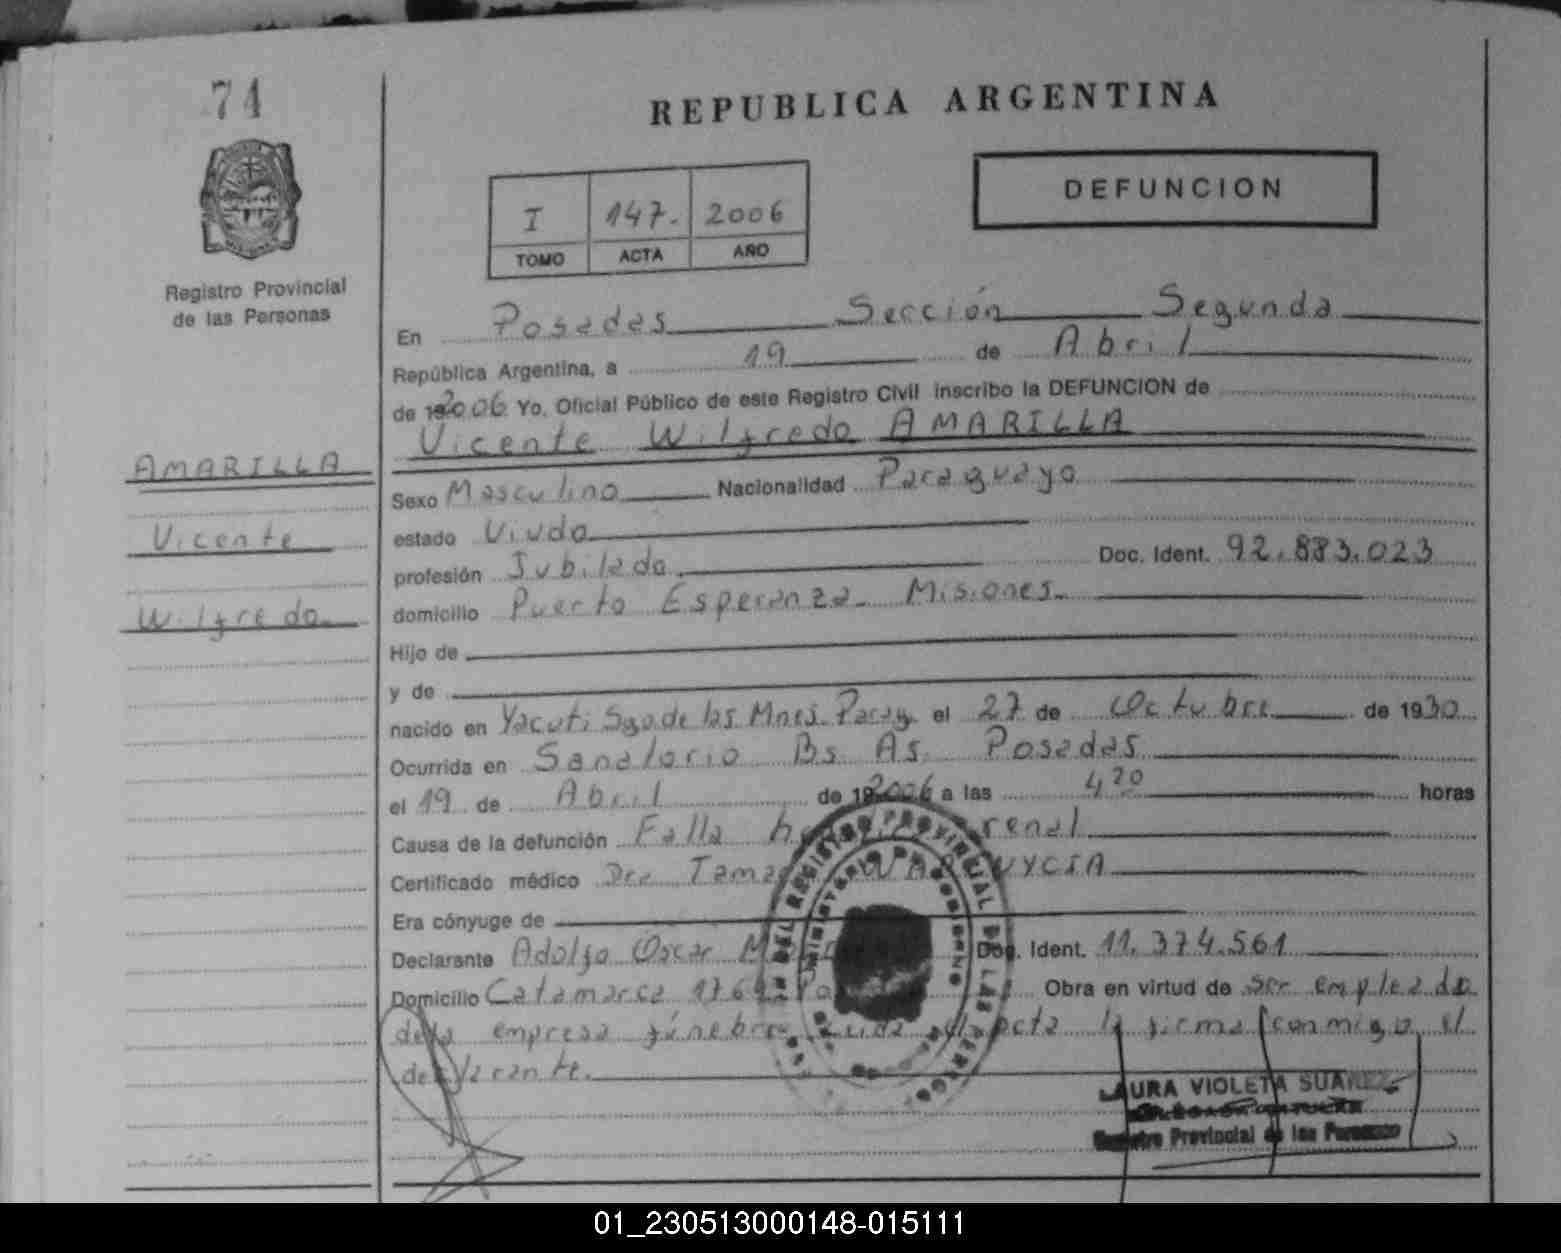 74
REPUBLICA ARGENTINA
DEFUNCION
I 147. 2006
TOMO ACTA AÑO
Registro Provincial
de las Personas
En Posadas Sección Segunda
República Argentina, a 19 de Abril
de 2006 Yo, Oficial Público de este Registro Civil inscribo la DEFUNCION de
Vicente Wilfredo AMARILLA
AMARILLA
Vicente
Wilfredo
Sexo Masculino Nacionalidad Paraguayo
estado Viudo
profesión Jubilado Doc. Ident. 92.883.023
domicilio Puerto Esperanza Misiones
Hijo de
y de
nacido en Yacuti Sgo de las Mnes. Paray. el 27 de Octubre de 1930
Ocurrida en Sanatorio Bs. As. Posadas
el 19 de Abril de 2006 a las 4 20 horas
Causa de la defunción Falla renal
Certificado médico Dra
Era cónyuge de
Declarante Adolfo Oscar Doc. Ident. 11.374.561
Domicilio Catamarca Obra en virtud de ser empleado
de la empresa fúnebre acta la firma conmigo el
declarante.
LAURA VIOLETA SUAREZ
Registro Provincial de las Personas
01_230513000148-015111